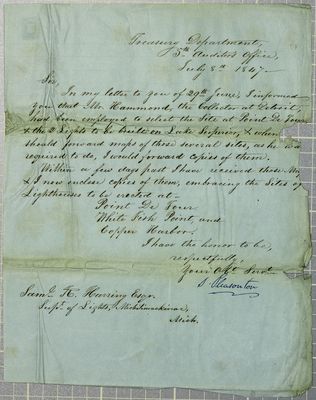 Treasury Department,
5th Auditor's Office,
July 8th 1847
Sir,
In my letter to you of 29th June, I informed
you that Mr. Hammond, the Collector at Detroit,
had been employed to select the Site at Point De Tour
& the 2 Lights to be built on Lake Superior, & when
should forward maps of these several sites, as he was
required to do, I would forward copies of them.
Within a few days past I have received those
& I now enclose copies of them, embracing the Sites of
Lighthouses to be erected at
Point De Tour
White Fish Point, and
Copper Harbor.
I have the honor to be,
respectfully,
Your Obt Servt
S. Pleasonton
Saml. K. Harring Esqr.
Supt. of Lights, Michilimackinac,
Mich.